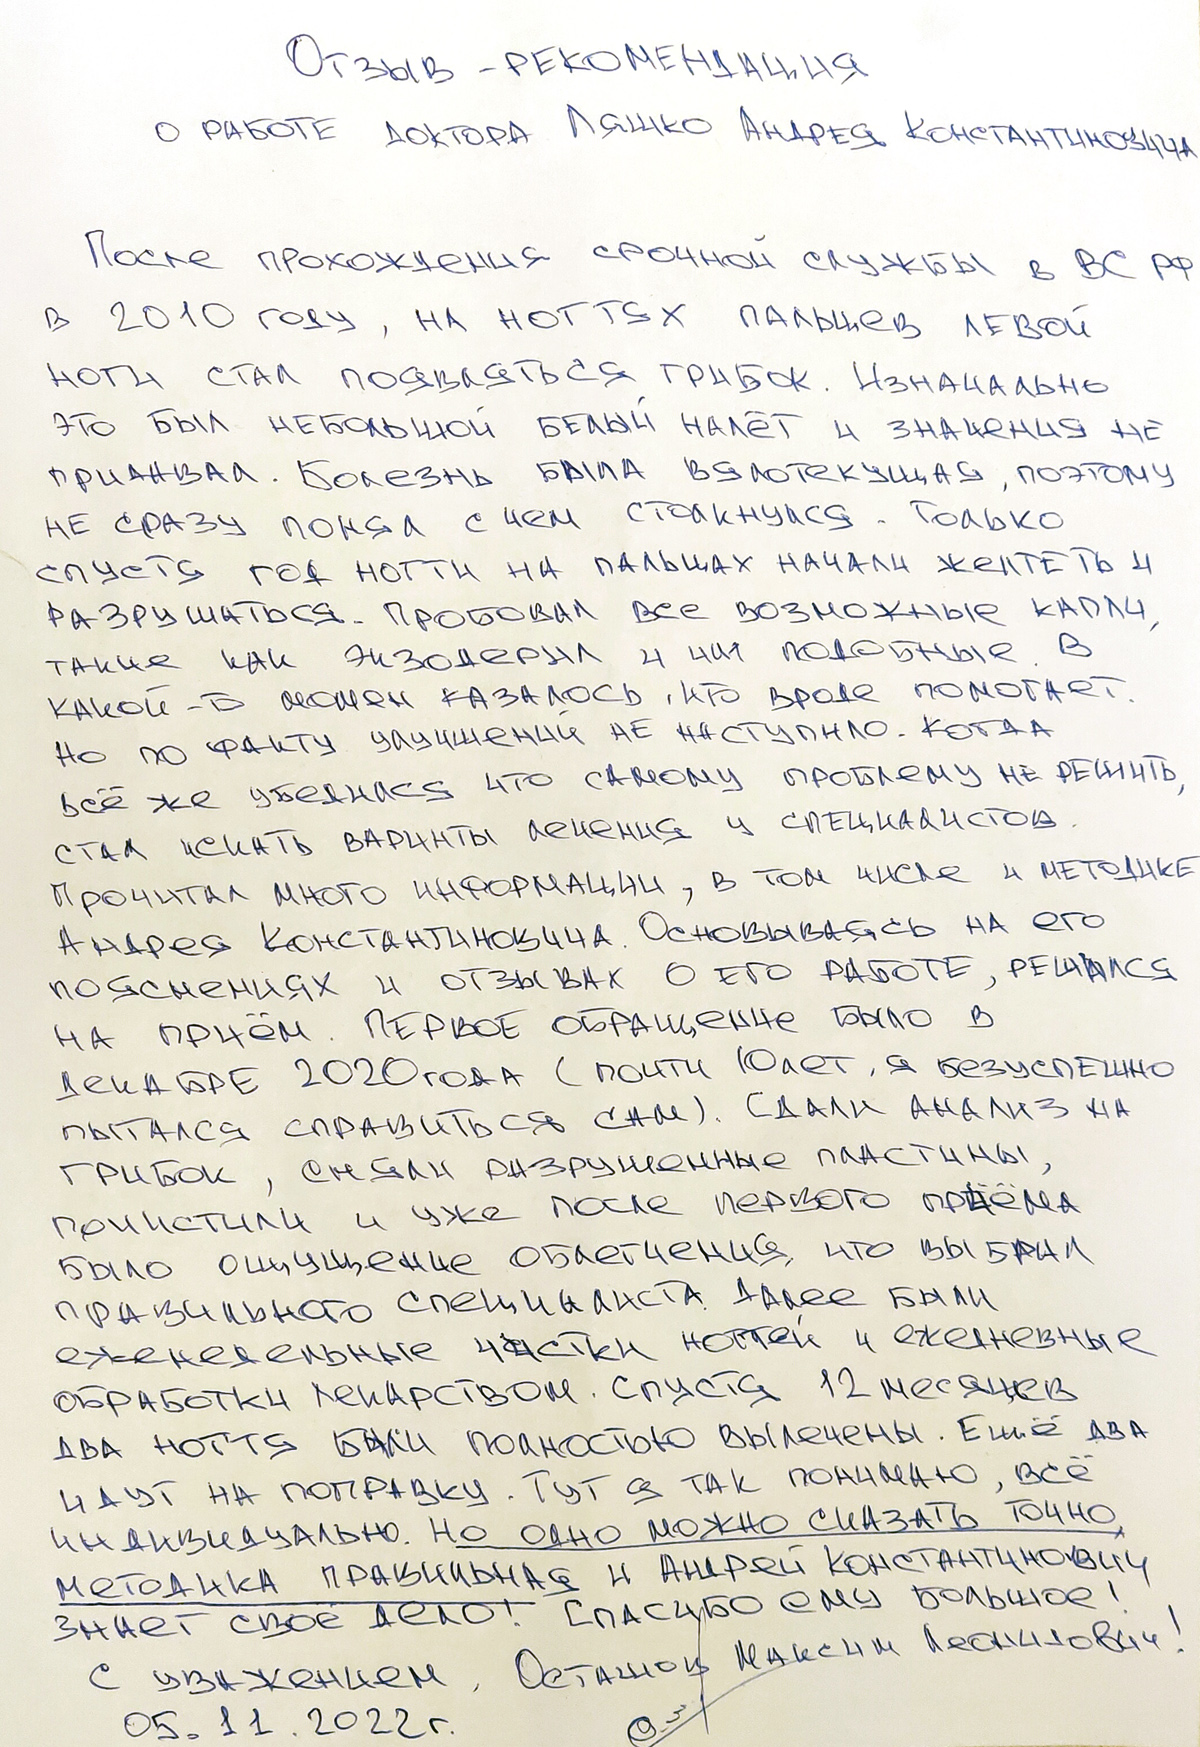 Отзыв-рекомендация
о работе доктора Ляшко Андрея Константиновича
После прохождения срочной службы в ВС РФ
в 2010 году, на ногтях пальцев левой
ноги стал появляться грибок. Изначально
это был небольшой белый налёт и значения не
придавал. Болезнь была вялотекущая, поэтому
не сразу понял с чем столкнулся. Только
спустя год ногти на пальцах начали желтеть и
разрушаться. Пробовал все возможные капли,
такие как экзодерил и им подобные. В
какой-то момен казалось, что вроде помогает.
Но по факту улучшений не наступило. Когда
всё же убедился что самому проблему не решить,
стал искать варинты лечения и специалистов.
Прочитал много информации, в том числе и методике
Андрея Константиновича. Основываясь на его
пояснениях и отзывах о его работе, решился
на приём. Первое обращение было в
декабре 2020 года (почти 10 лет, я безуспешно
пытался справиться сам). Сдали анализ на
грибок, сняли разрушенные пластины,
почистили и уже после первого приёма
было ощущение облегчения, что выбрал
правильного специалиста. Далее были
еженедельные чистки ногтей и ежедневные
обработки лекарством. Спустя 12 месяцев
два ногтя были полностью вылечены. Ещё два
идут на поправку. Тут я так понимаю, всё
индивидуально. Но одно можно сказать точно,
методика правильная и Андрей Константинович
знает своё дело! Спасибо ему большое!
С уважением, Осташов Максим Леонидович!
05.11.2022г.